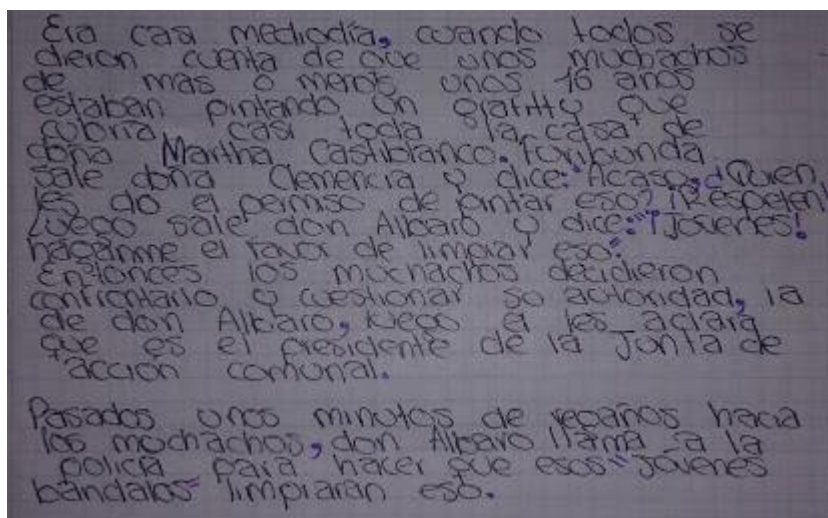 Era casi mediodía, cuando todos se
dieron cuenta de que unos muchachos
de mas o menos unos 16 años
estaban pintando un grafitty que
cubria casi toda la casa de
doña Martha Castiblanco. Furibunda
sale doña Clemencia y dice: "Acaso, ¿Quien
les dio el permiso de pintar eso? ¡Respeten!
Luego sale don Albaro y dice: "¡Jovenes!
haganme el favor de limpiar eso."
Entonces los muchachos decidieron
confrontarlo y cuestionar su autoridad, la
de don Albaro, luego el les aclara
que es el presidente de la Junta de
acción comunal.
Pasados unos minutos de regaños hacia
los muchachos, don Albaro llama a la
policía para hacer que esos "Jovenes
bándalos" limpiaran eso.